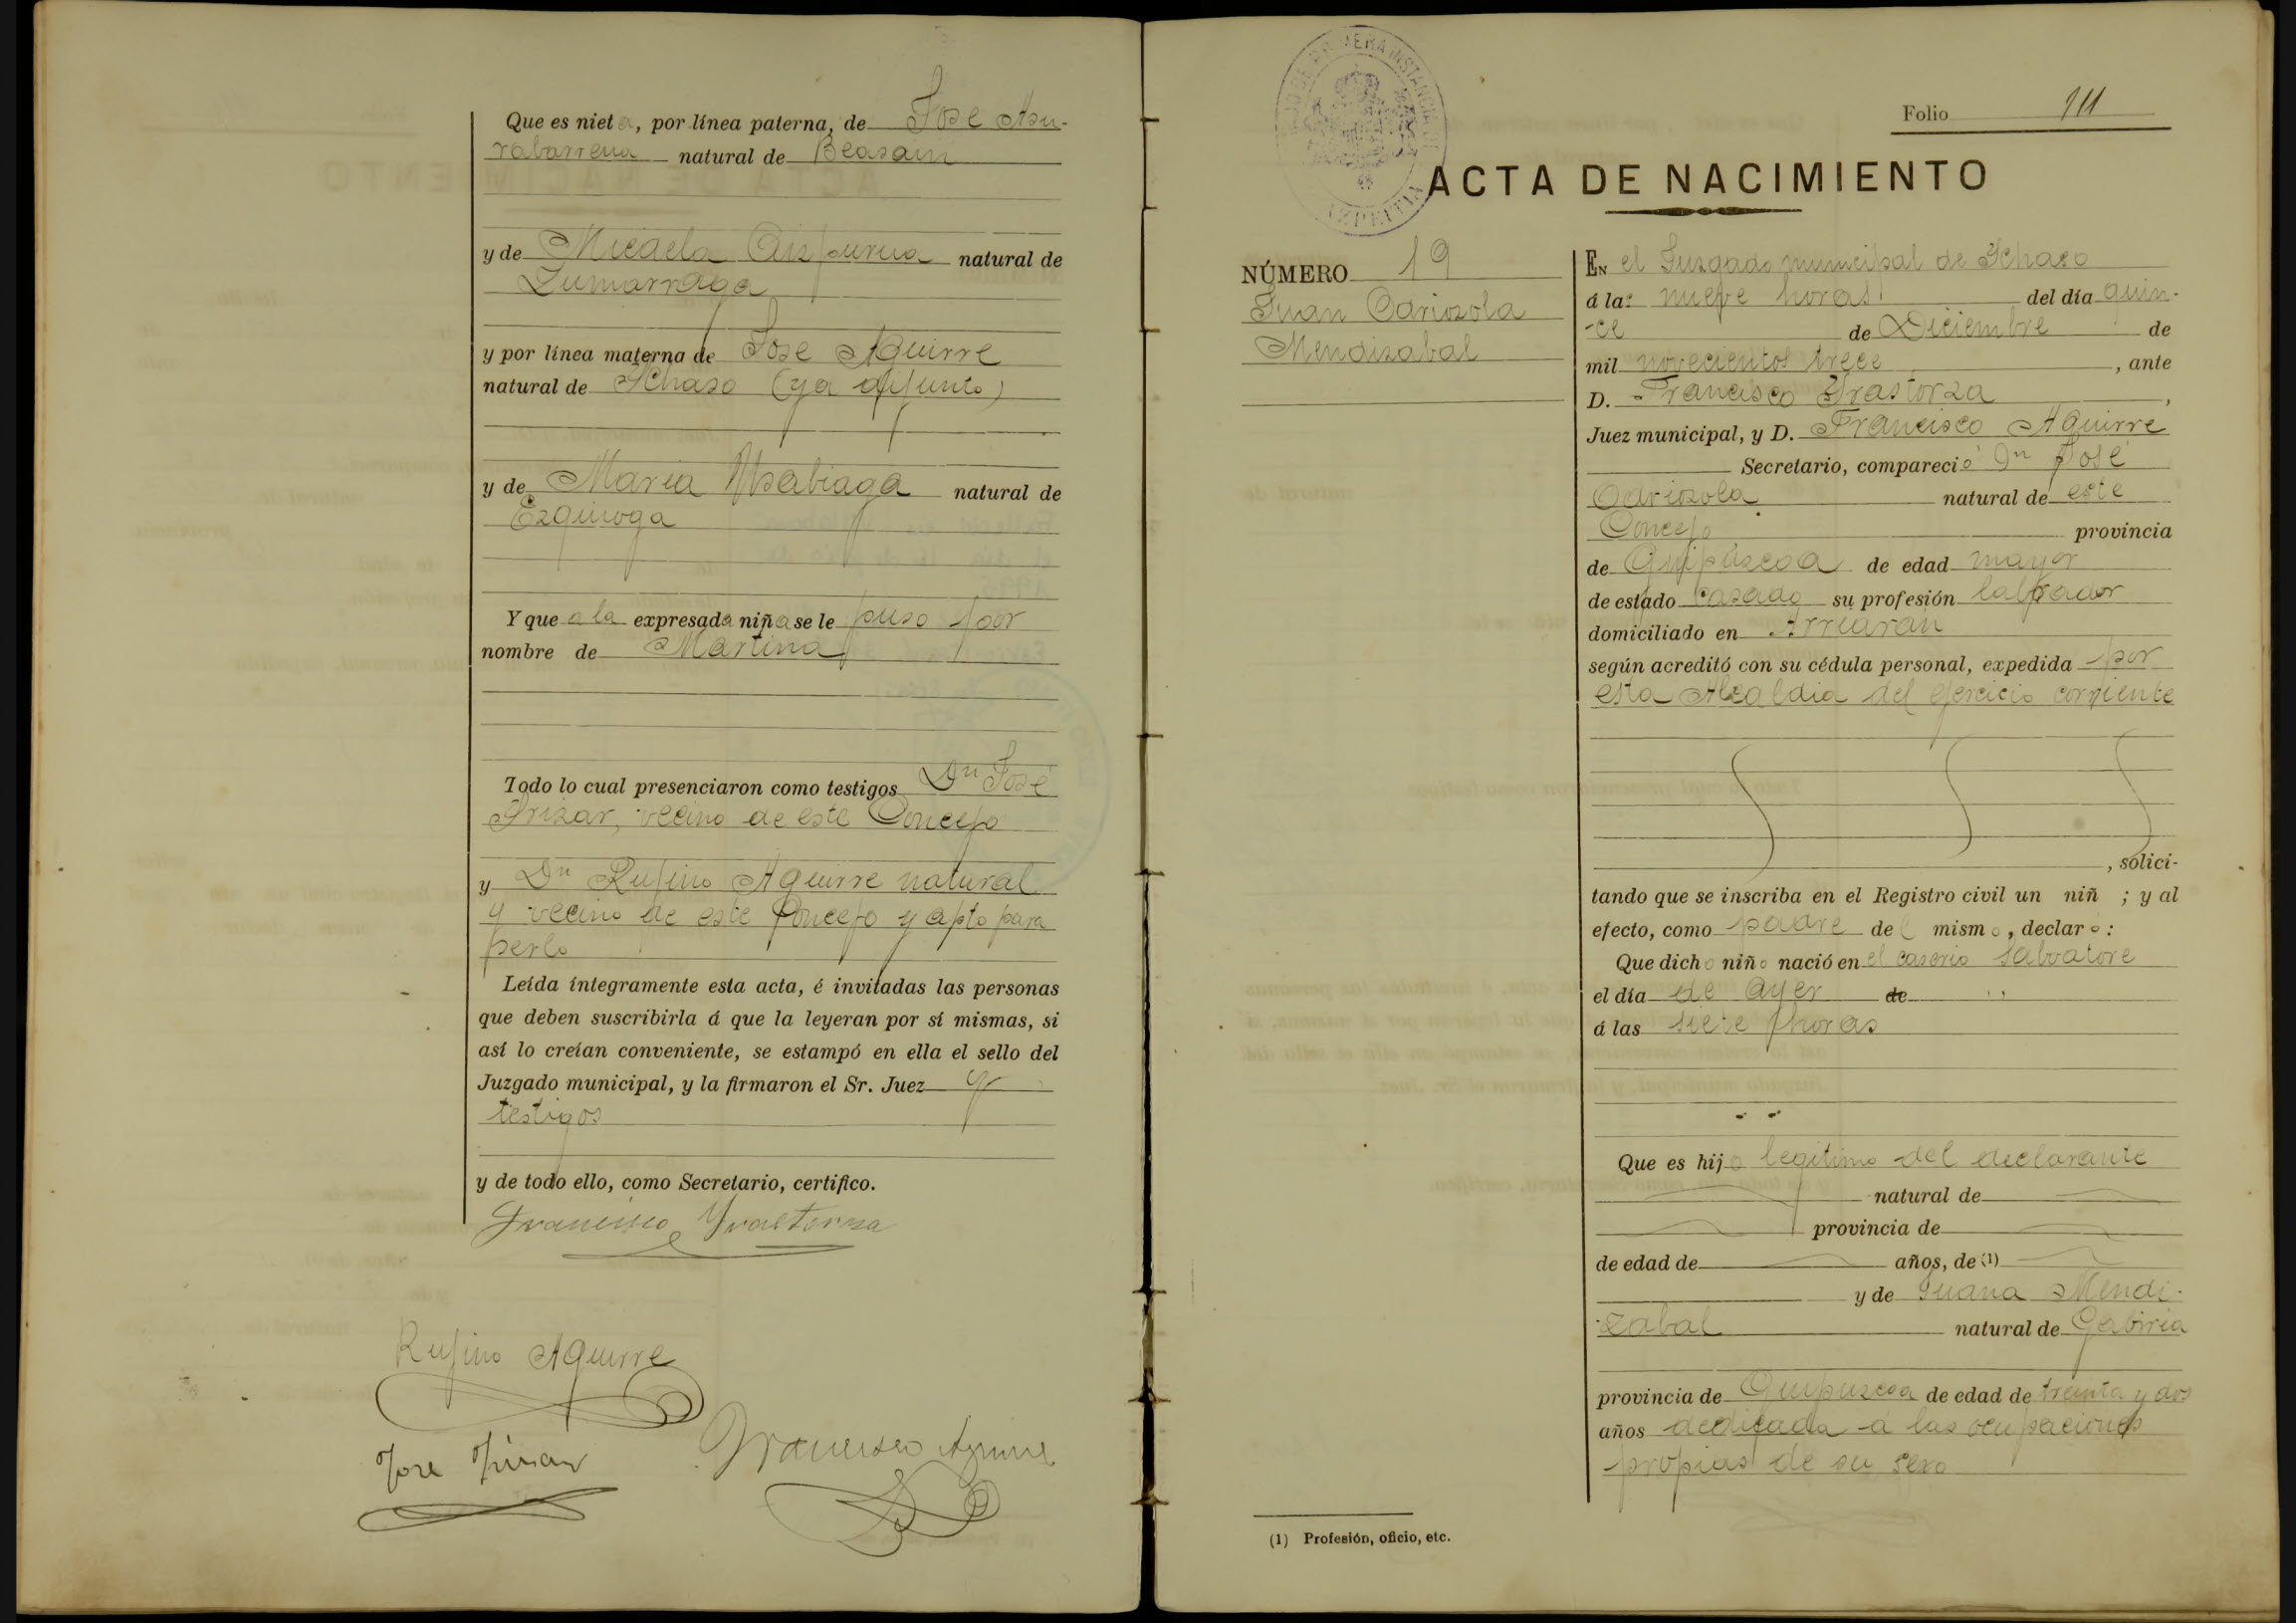 Que es nieta, por línea paterna, de Jose Asu-
rabarrena natural de Beasain
y de Micaela Aizpurua natural de
Zumarraga
y por línea materna de Jose Aguirre
natural de Ichaso (ya difunto)
y de Maria Usabiaga natural de
Ezquioga
Y que a la expresada niña se le puso por
nombre de Martina
Todo lo cual presenciaron como testigos Dn José
Irizar, vecino de este Concejo
y Dn Rufino Aguirre natural
y vecino de este Concejo y apto para
serlo
Leída íntegramente esta acta, é invitadas las personas
que deben suscribirla á que la leyeran por sí mismas, si
así lo creían conveniente, se estampó en ella el sello del
Juzgado municipal, y la firmaron el Sr. Juez y
testigos
y de todo ello, como Secretario, certifico.
Francisco Yrastorza
Rufino Aguirre
Jose Irizar
Francisco Aguirre
JUZGADO DE PRIMERA INSTANCIA DE
AZPEITIA
Folio 111
ACTA DE NACIMIENTO
NÚMERO 19
Juan Odriozola
Mendizabal
EN el Juzgado municipal de Ichaso
á las nueve horas del día quin-
-ce de Diciembre de
mil novecientos trece, ante
D. Francisco Yrastorza,
Juez municipal, y D. Francisco Aguirre
Secretario, compareció Dn José
Odriozola natural de este
Concejo provincia
de Guipúzcoa de edad mayor
de estado casado su profesión labrador
domiciliado en Arriaran
según acreditó con su cédula personal, expedida por
esta Alcaldia del ejercicio corriente
, solici-
tando que se inscriba en el Registro civil un niñ ; y al
efecto, como padre del mismo, declaró:
Que dicho niño nació en el caserio Salvatore
el día de ayer de "
á las siete horas
Que es hijo legitimo del declarante
natural de
provincia de
de edad de años, de (1)
y de Juana Mendi-
zabal natural de Gabiria
provincia de Guipuzcoa de edad de treinta y dos
años dedicada á las ocupaciones
propias de su sexo
(1) Profesión, oficio, etc.